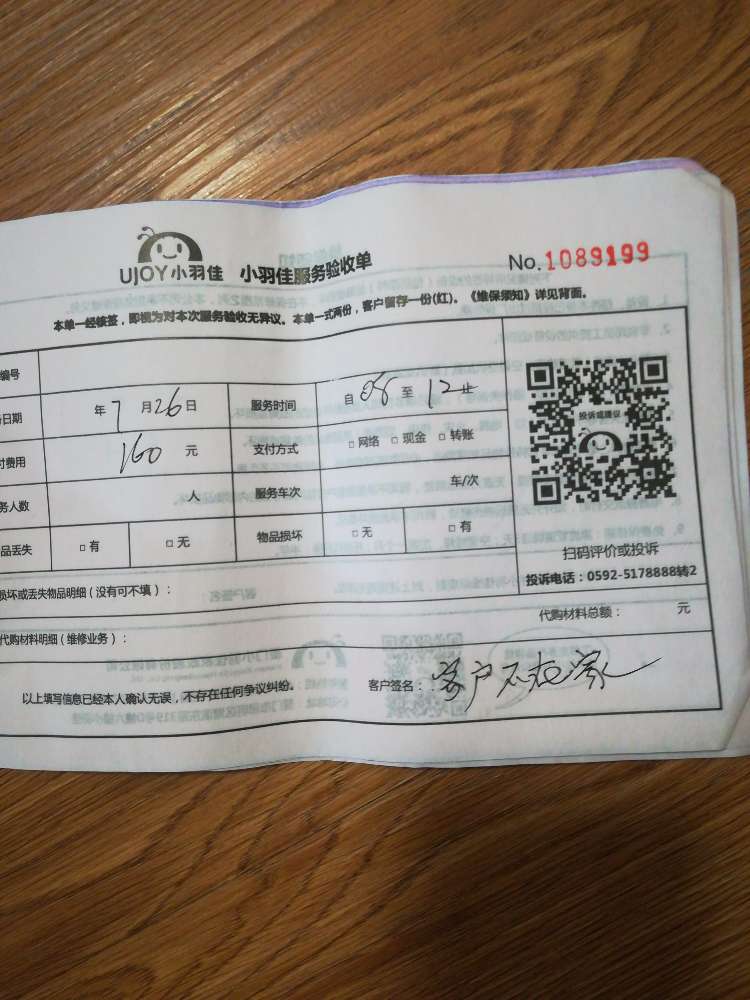 UJOY小羽佳 小羽佳服务验收单 No.1089199
本单一经核签，即视为对本次服务验收无异议。本单一式两份，客户留存一份(红)。《维保须知》详见背面。
编号
日期 年7月26日 服务时间 自08至12止
付费用 160元 支付方式 □网络 □现金 □转账
务人数 人 服务车次 车/次
品丢失 □有 □无 物品损坏 □无 □有
投诉或建议
扫码评价或投诉
投诉电话：0592-5178888转2
损坏或丢失物品明细（没有可不填）：
代购材料明细（维修业务）： 代购材料总额： 元
以上填写信息已经本人确认无误，不存在任何争议纠纷。 客户签名：客户不在家